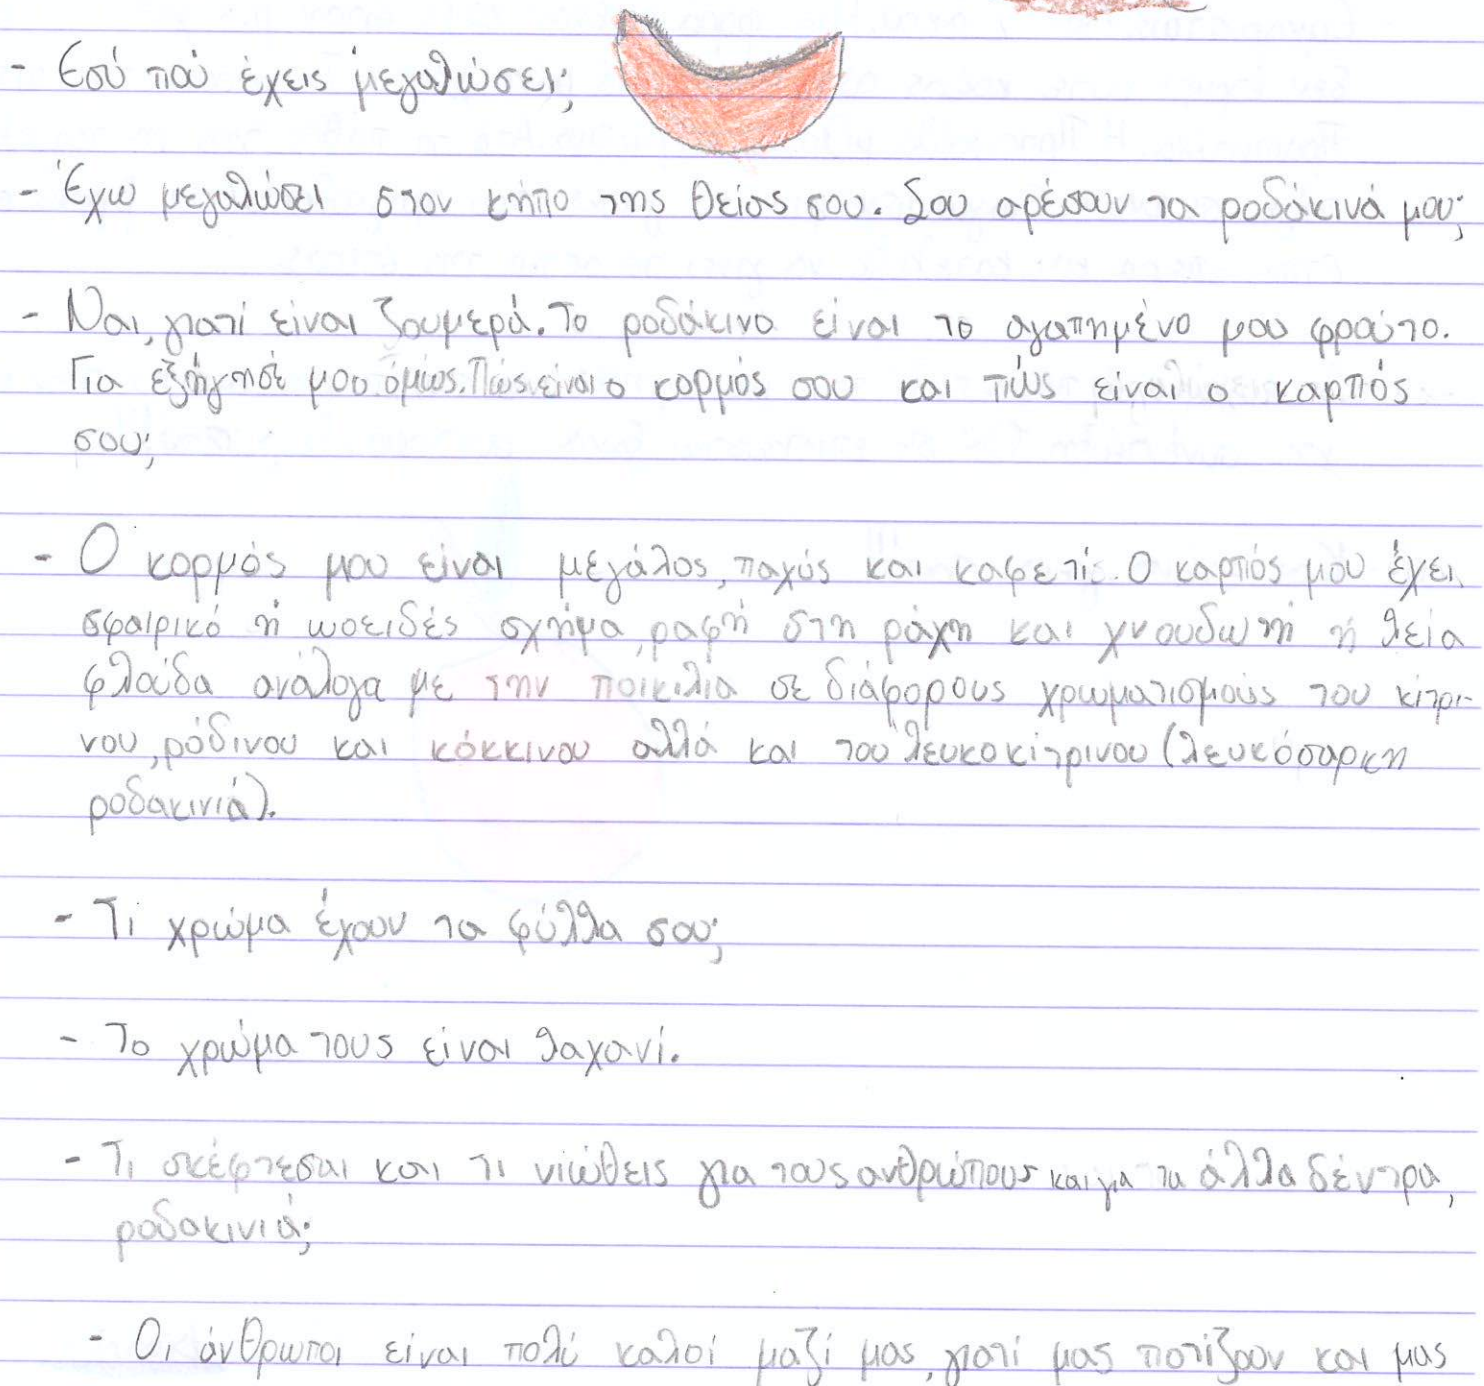 - Εσύ πού έχεις μεγαλώσει;
- Έχω μεγαλώσει στον κήπο της θείας σου. Σου αρέσουν τα ροδάκινά μου;
- Ναι, γιατί είναι ζουμερά. Το ροδάκινο είναι το αγαπημένο μου φρούτο.
Για εξήγησέ μου όμως. Πώς είναι ο κορμός σου και πώς είναι ο καρπός
σου;
- Ο κορμός μου είναι μεγάλος, παχύς και καφετίς. Ο καρπός μου έχει
σφαιρικό ή ωοειδές σχήμα, ραφή στη ράχη και χνουδωτή ή λεία
φλούδα ανάλογα με την ποικιλία σε διάφορους χρωματισμούς του κίτρι-
νου, ρόδινου και κόκκινου αλλά και του λευκοκίτρινου (λευκόσαρκη
ροδακινιά).
- Τι χρώμα έχουν τα φύλλα σου;
- Το χρώμα τους είναι λαχανί.
- Τι σκέφτεσαι και τι νιώθεις για τους ανθρώπους και για τα άλλα δέντρα,
ροδακινιά;
- Οι άνθρωποι είναι πολύ καλοί μαζί μας, γιατί μας ποτίζουν και μας